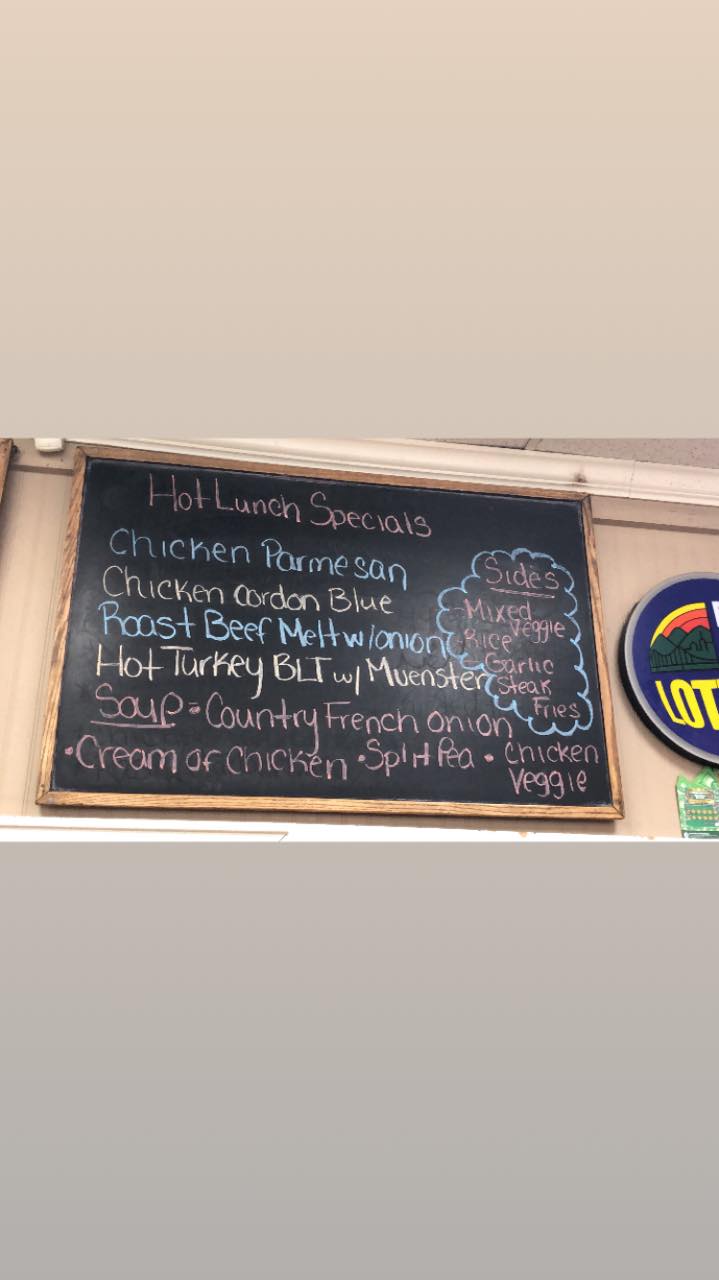 Hot Lunch Specials
Chicken Parmesan
Chicken Cordon Blue
Roast Beef Melt w/onion
Hot Turkey BLT w/ Muenster
Sides
Mixed
Veggie
Rice
Garlic
Steak
Fries
Soup = Country French Onion
• Cream of Chicken • Split Pea • Chicken
Veggie
LOT